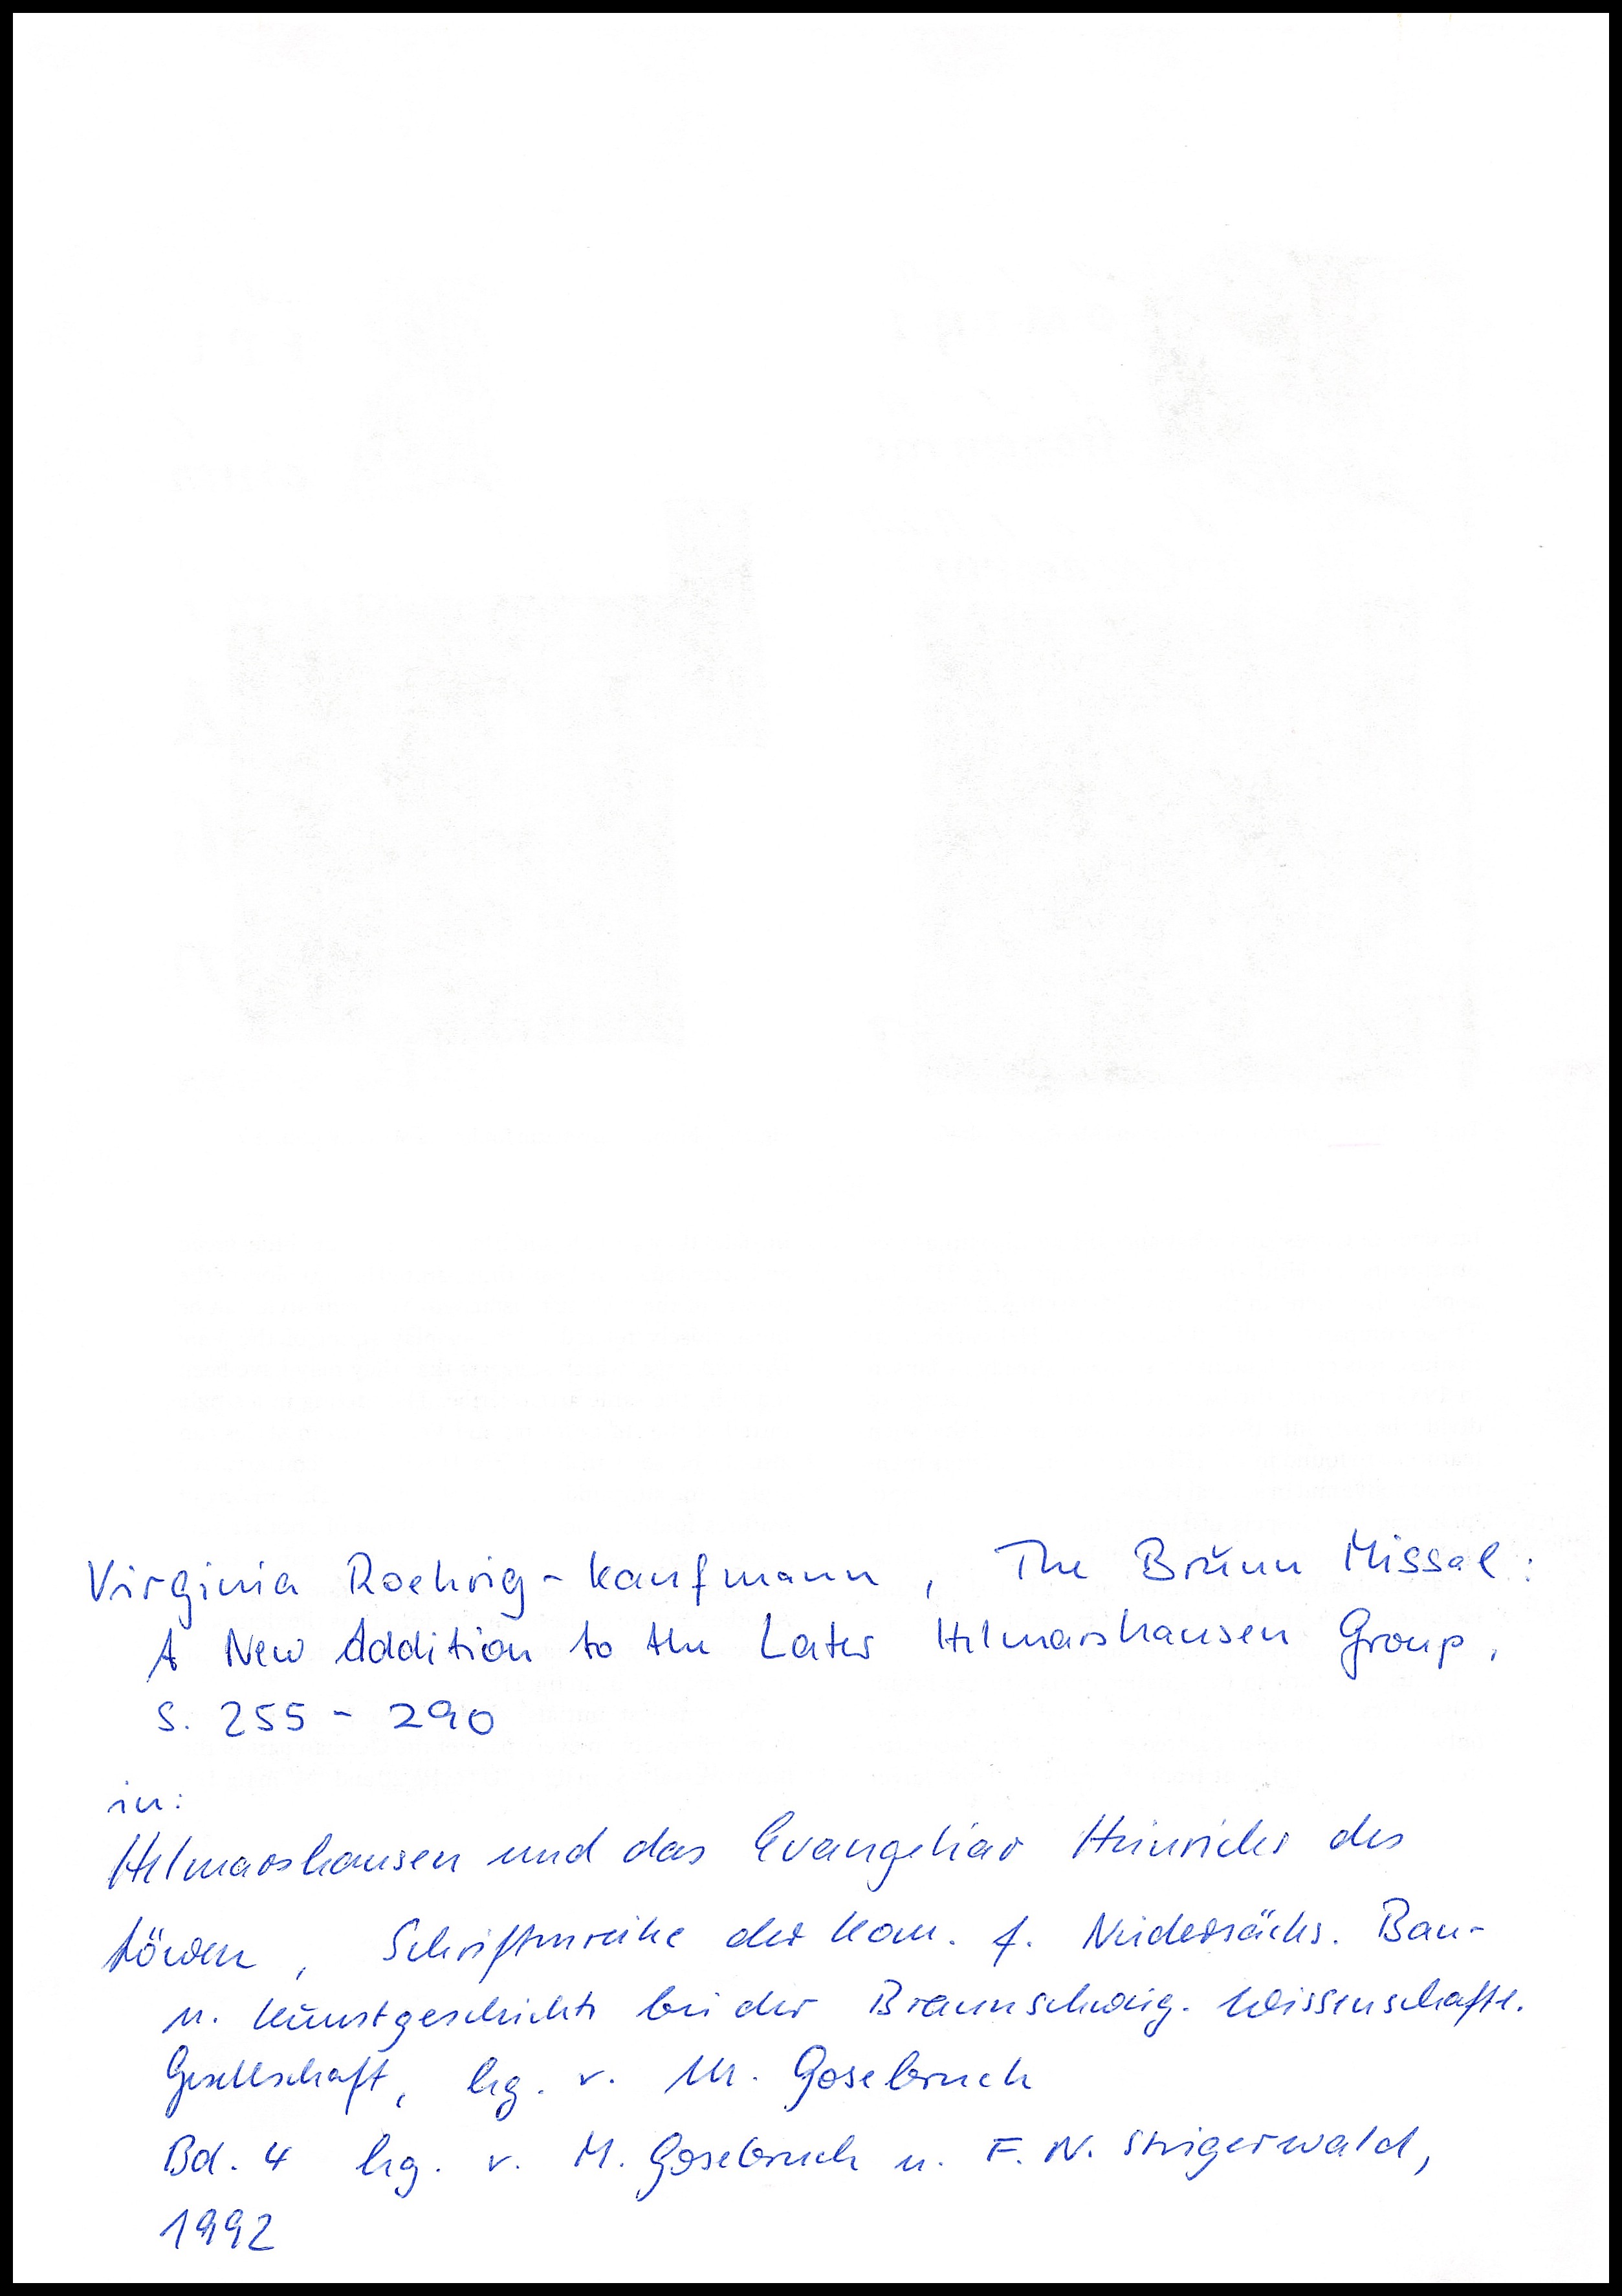 Virginia Roehrig-Kaufmann, The Brünn Missal:
A New Addition to the Later Helmarshausen Group,
S. 255 - 290
in:
Helmarshausen und das Evangeliar Heinrichs des
Löwen, Schriftenreihe der Kom. f. Niedersächs. Bau-
u. Kunstgeschichte bei der Braunschweig. Wissenschaftl.
Gesellschaft, hg. v. M. Gosebruch
Bd. 4 hg. v. M. Gosebruch u. F. N. Steigerwald,
1992